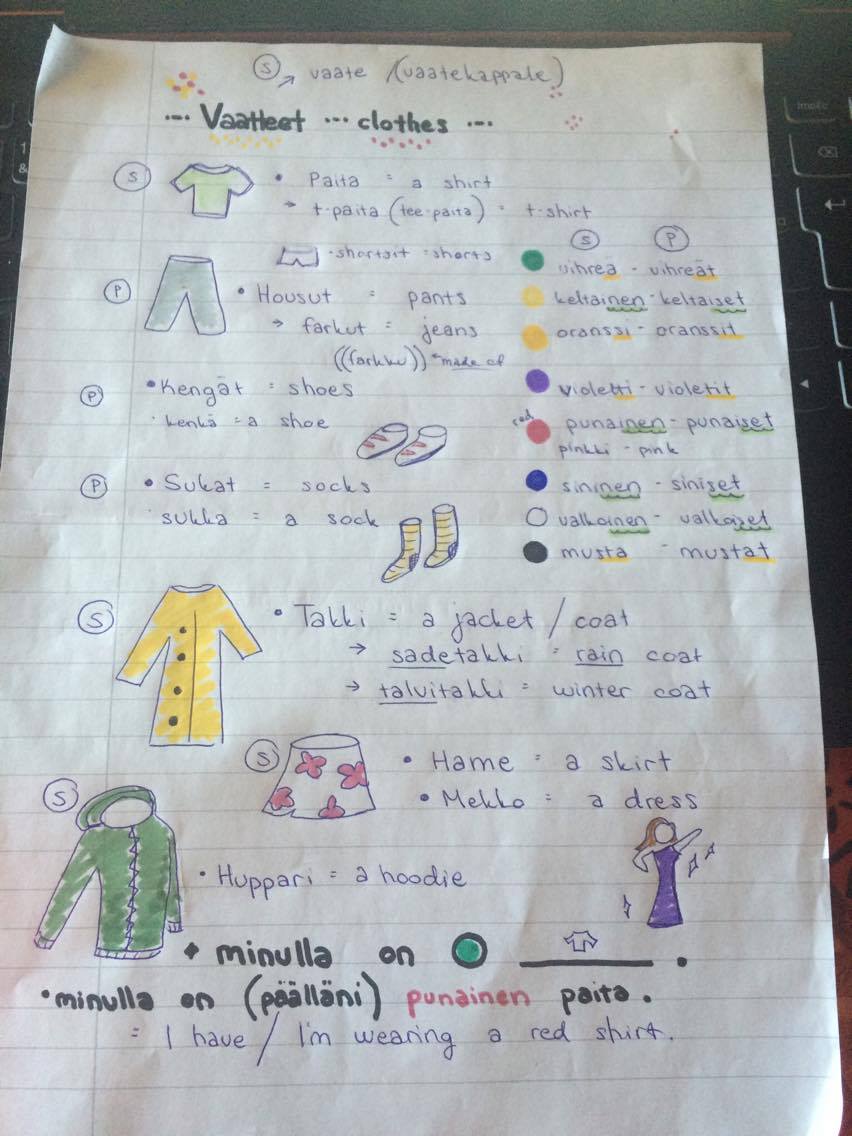 S → vaate / (vaatekappale)
... Vaatteet ... clothes ...
S • Paita = a shirt
→ t-paita (tee-paita) = t-shirt
• shortsit = shorts
P • Housut = pants
→ farkut = jeans
((farkku)) *made of
P • Kengät = shoes
• kenkä = a shoe
P • Sukat = socks
• sukka = a sock
S P
vihreä - vihreät
keltainen - keltaiset
oranssi - oranssit
violetti - violetit
red punainen - punaiset
pinkki - pink
sininen - siniset
valkoinen - valkoiset
musta - mustat
S • Takki = a jacket / coat
→ sadetakki = rain coat
→ talvitakki = winter coat
S • Hame = a skirt
• Mekko = a dress
S • Huppari = a hoodie
• minulla on ______ .
• minulla on (päälläni) punainen paita.
= I have / I'm wearing a red shirt.